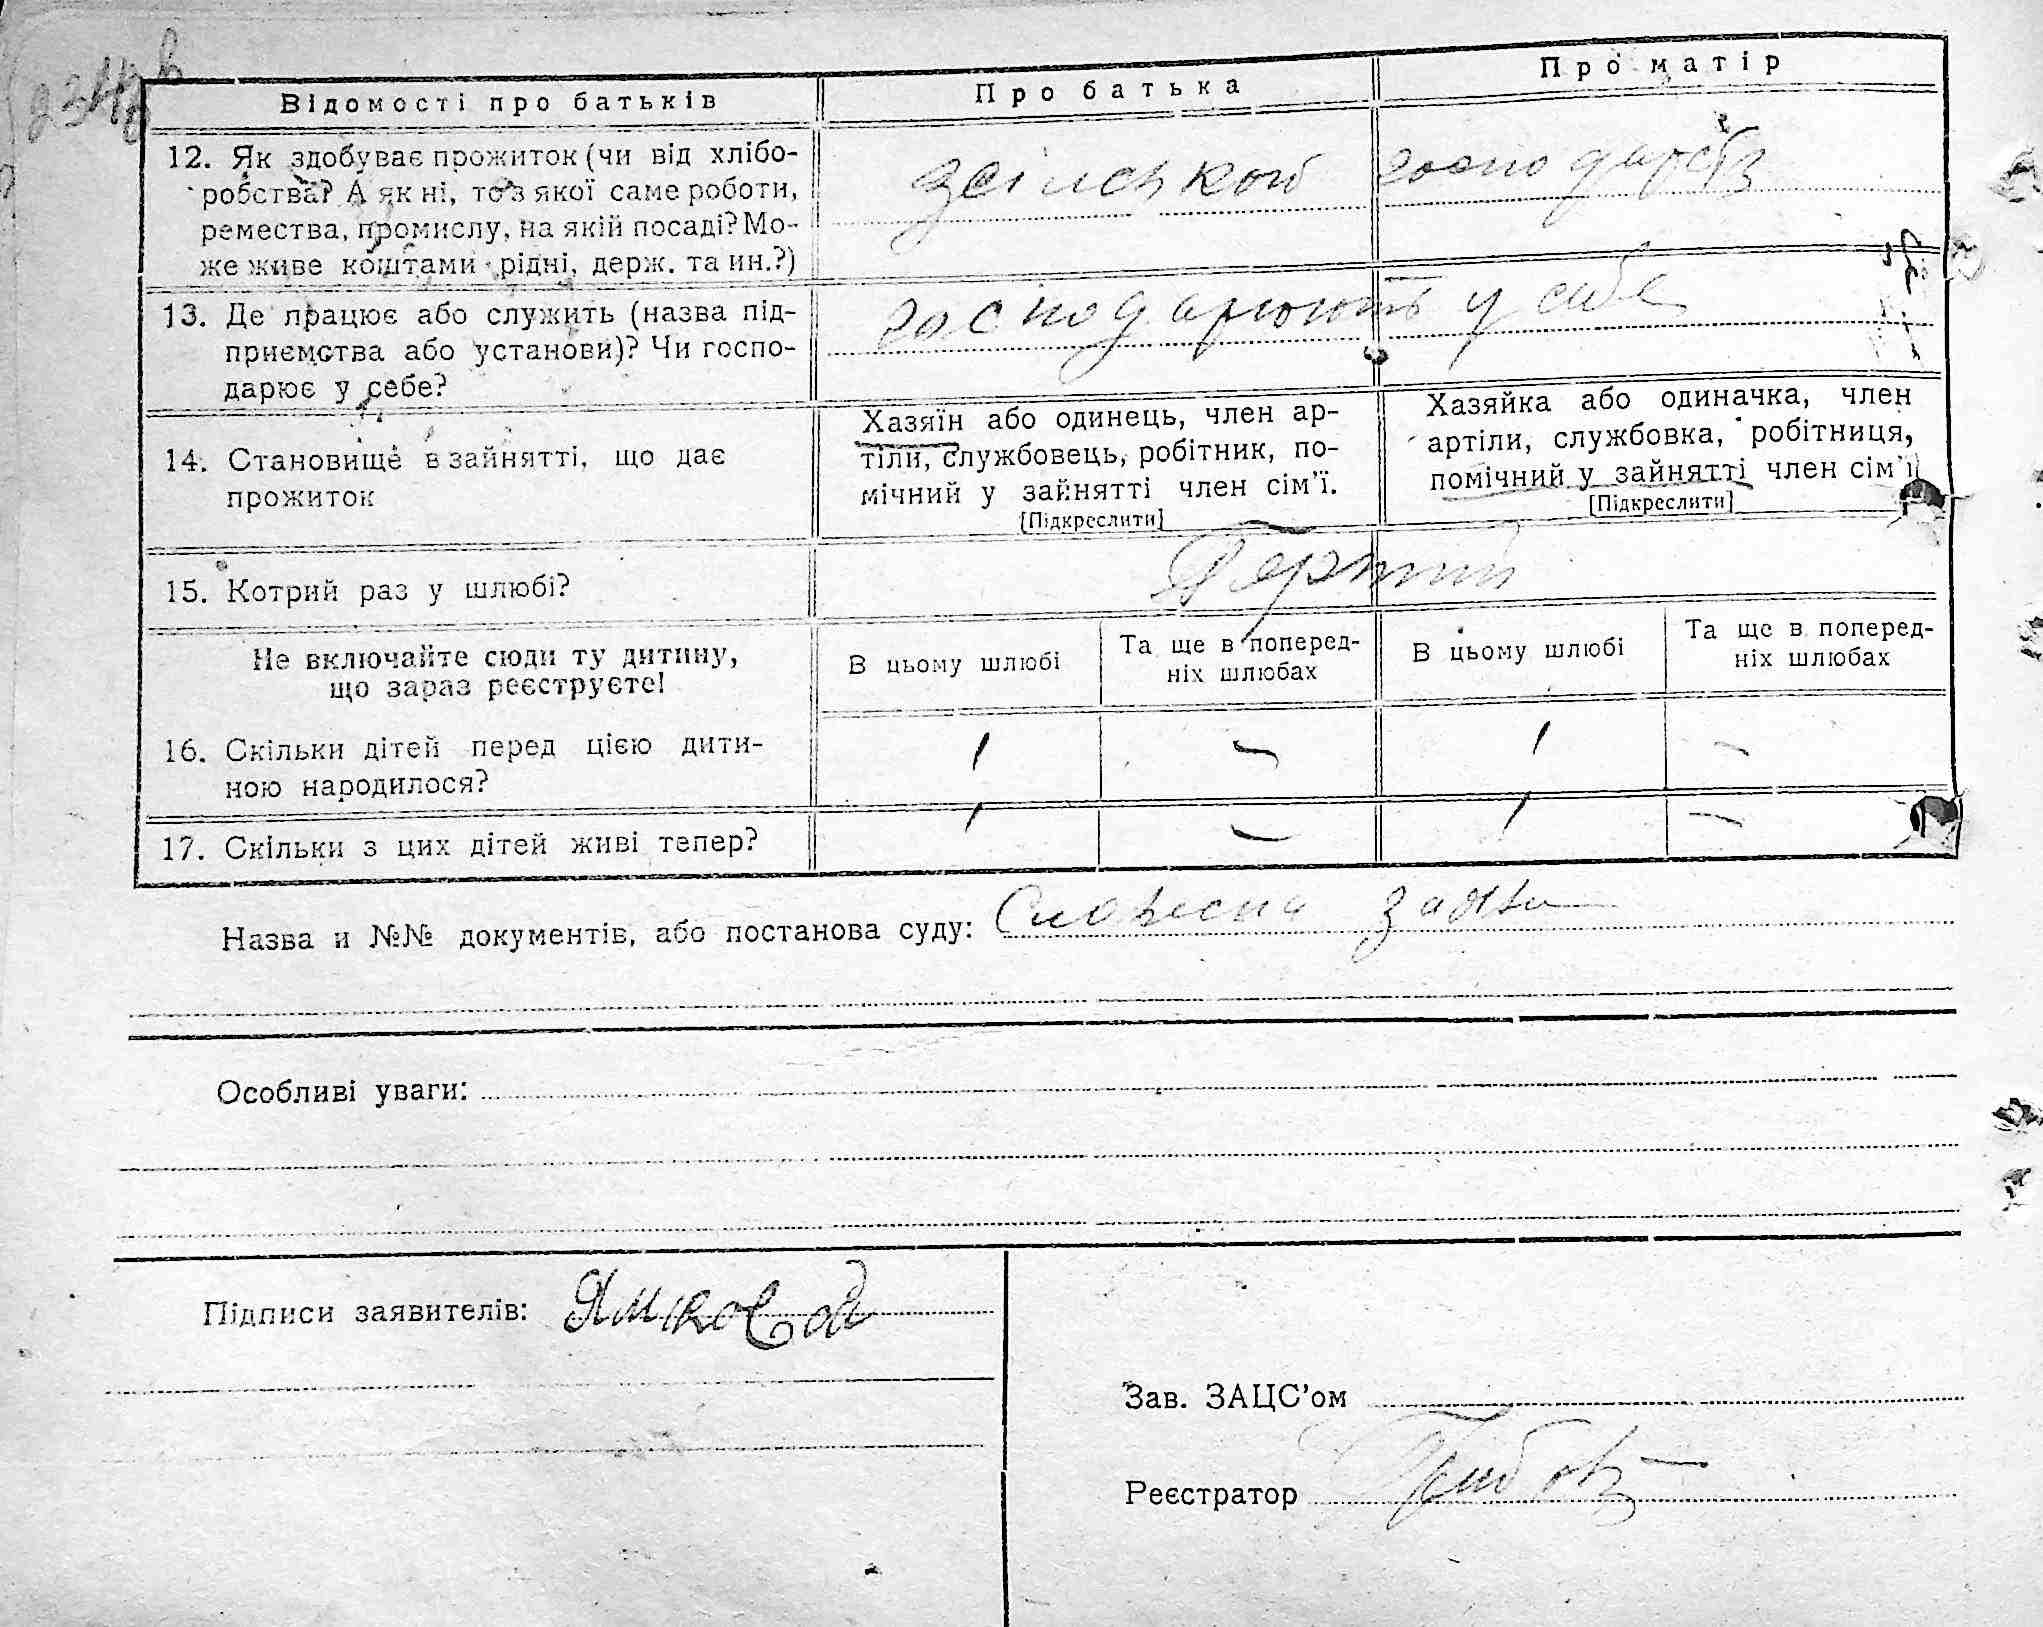 Відомості про батьків
Про батька
Про матір
12. Як здобуває прожиток (чи від хлібо-
робства? А як ні, то з якої саме роботи,
ремества, промислу, на якій посаді? Мо-
же живе коштами рідні, держ. та ин.?)
13. Де працює або служить (назва під-
приємства або установи)? Чи госпо-
дарює у себе?
господарюють у себе
14. Становище в зайнятті, що дає
прожиток
Хазяїн або одинець, член ар-
тіли, службовець, робітник, по-
мічний у зайнятті член сім'ї.
[Підкреслити]
Хазяйка або одиначка, член
артіли, службовка, робітниця,
помічний у зайнятті член сім'ї
[Підкреслити]
15. Котрий раз у шлюбі?
Перший
Не включайте сюди ту дитину,
що зараз реєструєте!
В цьому шлюбі
Та ще в поперед-
ніх шлюбах
В цьому шлюбі
Та ще в поперед-
ніх шлюбах
16. Скільки дітей перед цією дити-
ною народилося?
1 – 1 –
17. Скільки з цих дітей живі тепер?
1 – 1 –
Назва и №№ документів, або постанова суду: Словесна заява
Особливі уваги:
Підписи заявителів:
Зав. ЗАЦС'ом
Реєстратор